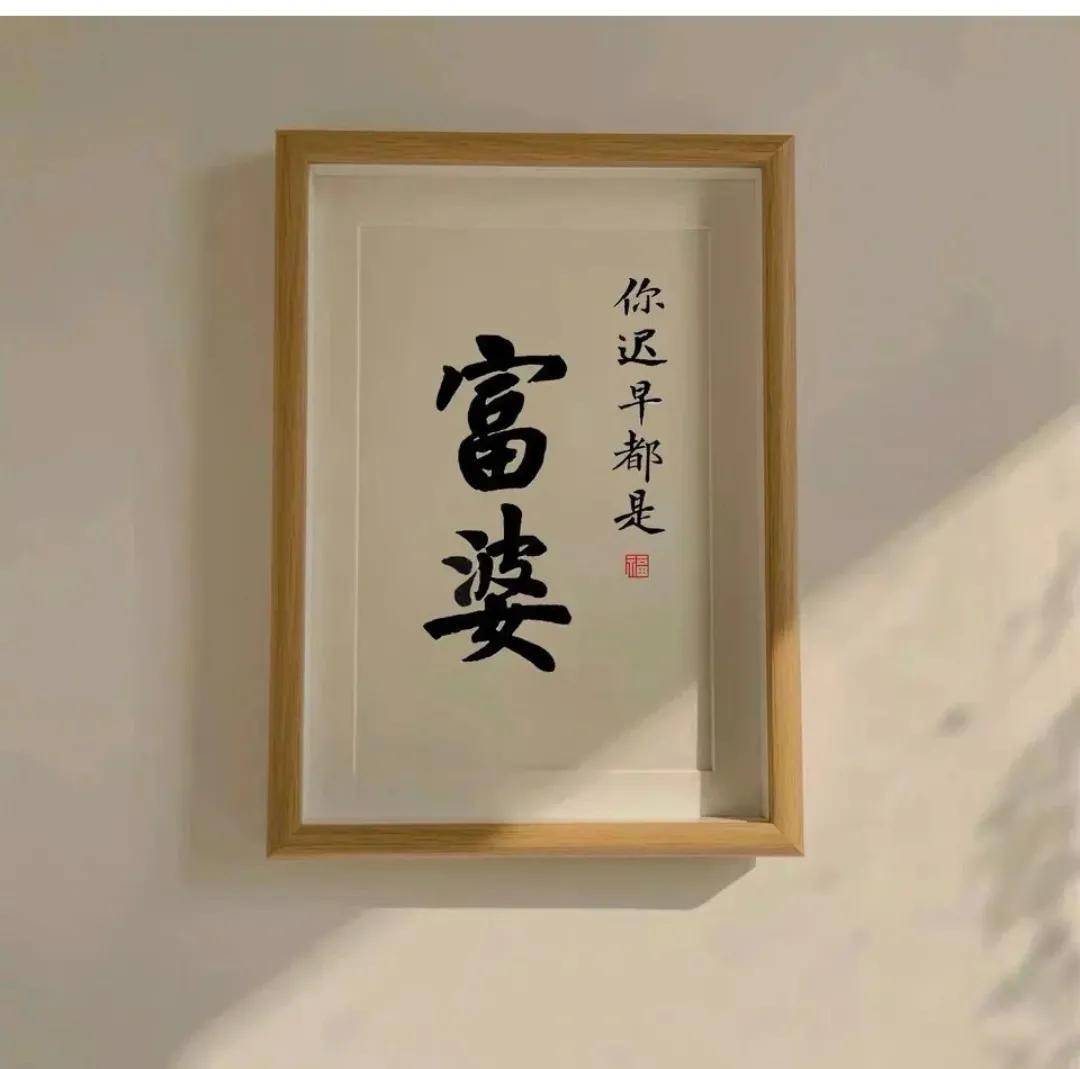 你迟早都是
福
富婆